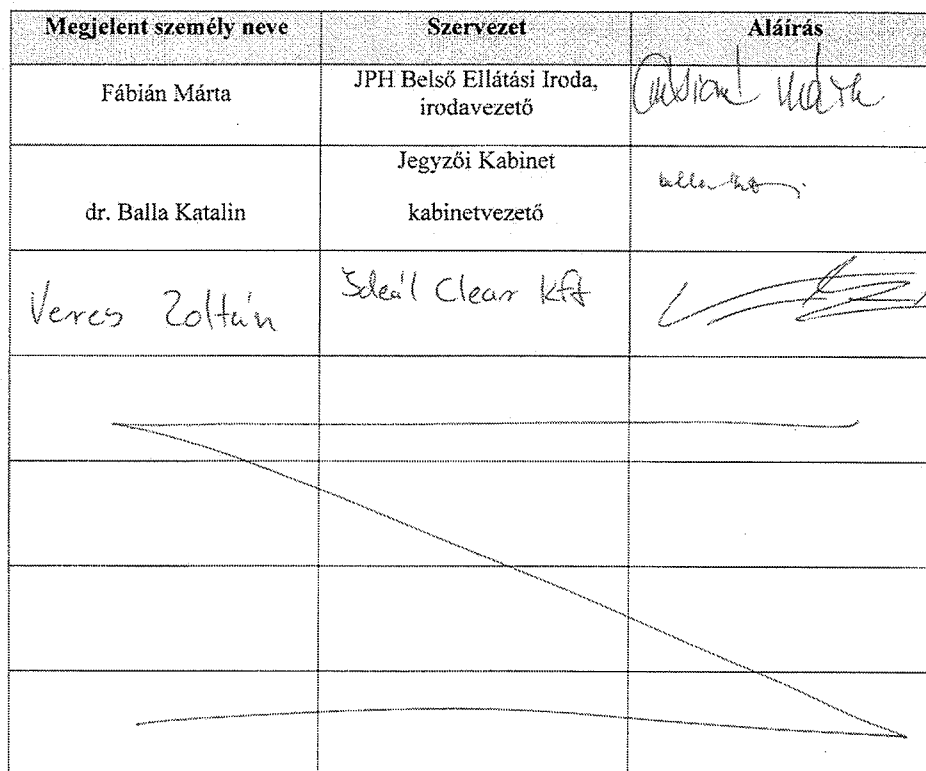 Megjelent személy neve Szervezet Aláírás
Fábián Márta JPH Belső Ellátási Iroda,
irodavezető
Jegyzői Kabinet
dr. Balla Katalin kabinetvezető
Veres Zoltán Ideál Clean Kft